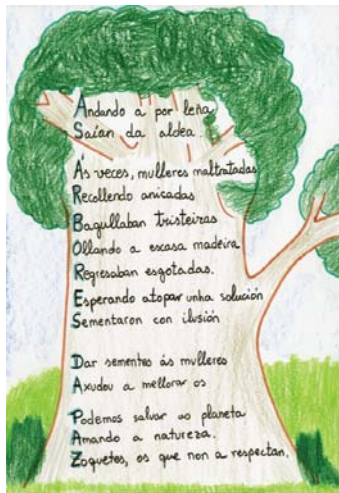 Andando a por leña
Saían da aldea.
Ás veces, mulleres maltratadas
Recollendo anicadas
Bagullaban tristeiras
Ollando a escasa madeira
Regresaban esgotadas.
Esperando atopar unha solución
Sementaron con ilusión
Dar sementes ás mulleres
Axudou a mellorar os
Podemos salvar ao planeta
Amando a natureza.
Zoquetes, os que non a respectan.